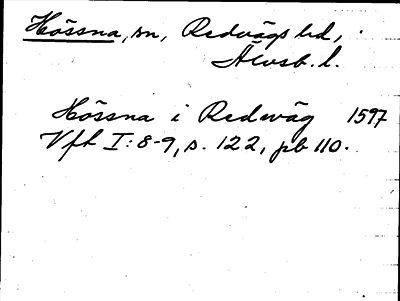 Hössna, sn, Redvägs hd,
Älvsb. l.
Hössna i Redwäg 1597
Vft I: 8-9, s. 122, pb 110.